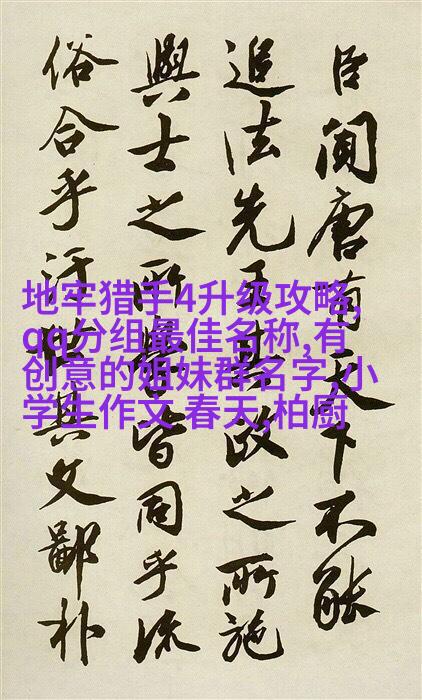 臣聞唐有天下不能
追法先王其政之所施
與士之所學皆同乎流
俗合乎汙其文鄙朴
地牢猎手4升级攻略,
qq分组最佳名称,有
创意的姐妹群名字,小
学生作文 春天,柏厨